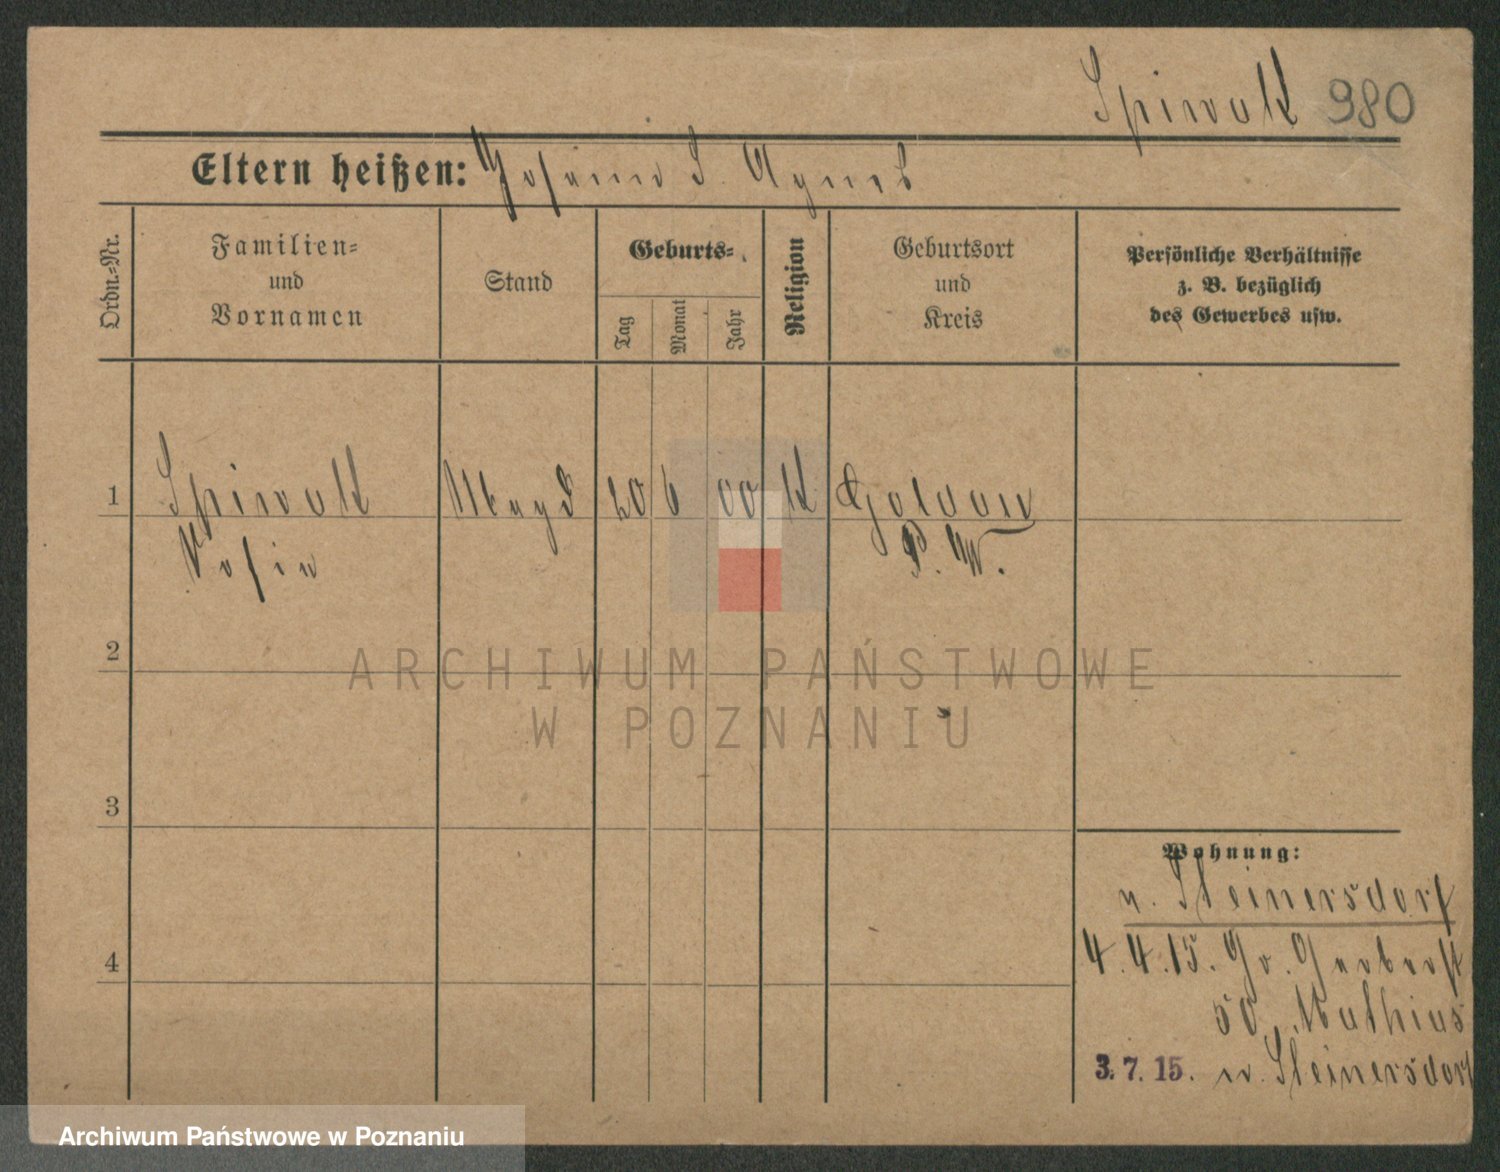 Spiwak 980
Eltern heißen: Johann S. Agnes
Ordn.-Nr.
Familien-
und
Vornamen
Stand
Geburts-
Tag
Monat
Jahr
Religion
Geburtsort
und
Kreis
Persönliche Verhältnisse
z. B. bezüglich
des Gewerbes usw.
1 Spiwak Magd 20 6 00 K Goldau
Rosin P. W.
2
ARCHIWUM PAŃSTWOWE
W POZNANIU
3
Wohnung:
n. Steinersdorf
4
4.4.15. Gr. Gerberst
50 Mathias
3.7.15. n. Steinersdorf
Archiwum Państwowe w Poznaniu